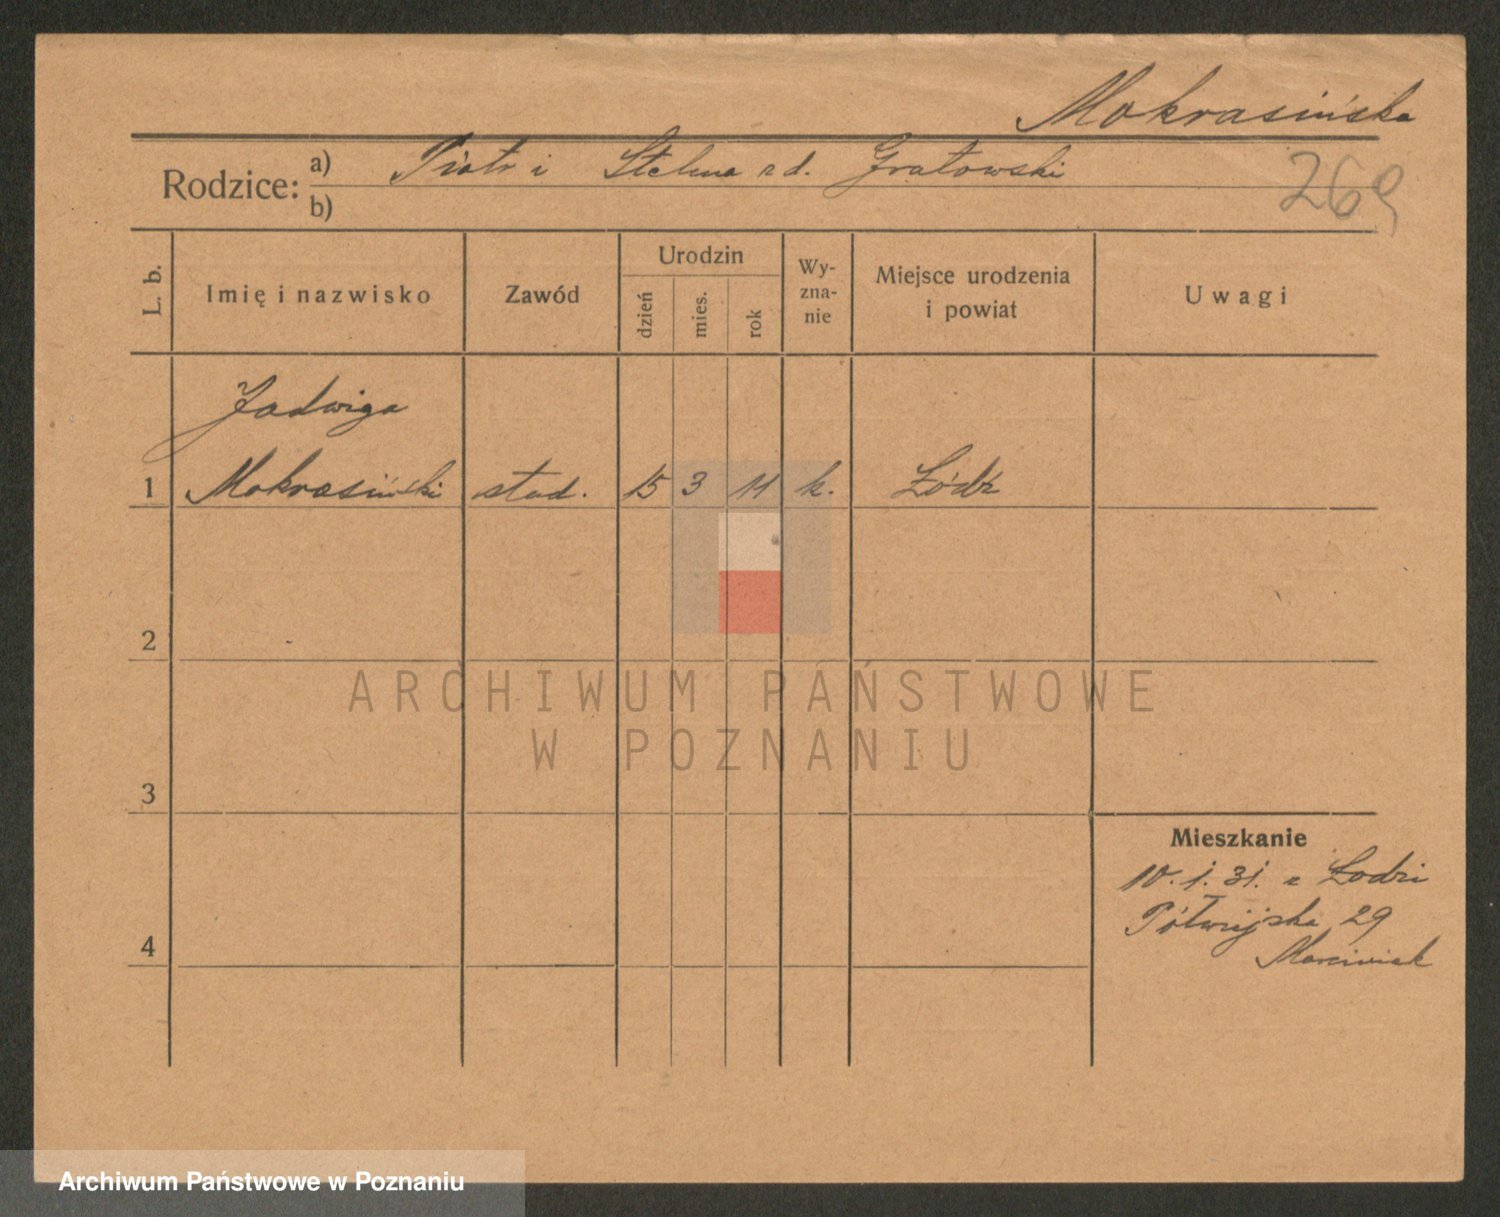 Mokrasińska
Rodzice: a) Piotr i Stelma z d. Gratowski
b)
269
L. b. Imię i nazwisko Zawód Urodzin dzień mies. rok Wyznanie Miejsce urodzenia i powiat Uwagi
Jadwiga
1 Mokrasiński stud. 15 3 11 k. Łódź
2
ARCHIWUM PAŃSTWOWE
W POZNANIU
3
Mieszkanie
10. 1. 31. z Łodzi
Półwiejska 29
4 Marciniak
Archiwum Państwowe w Poznaniu